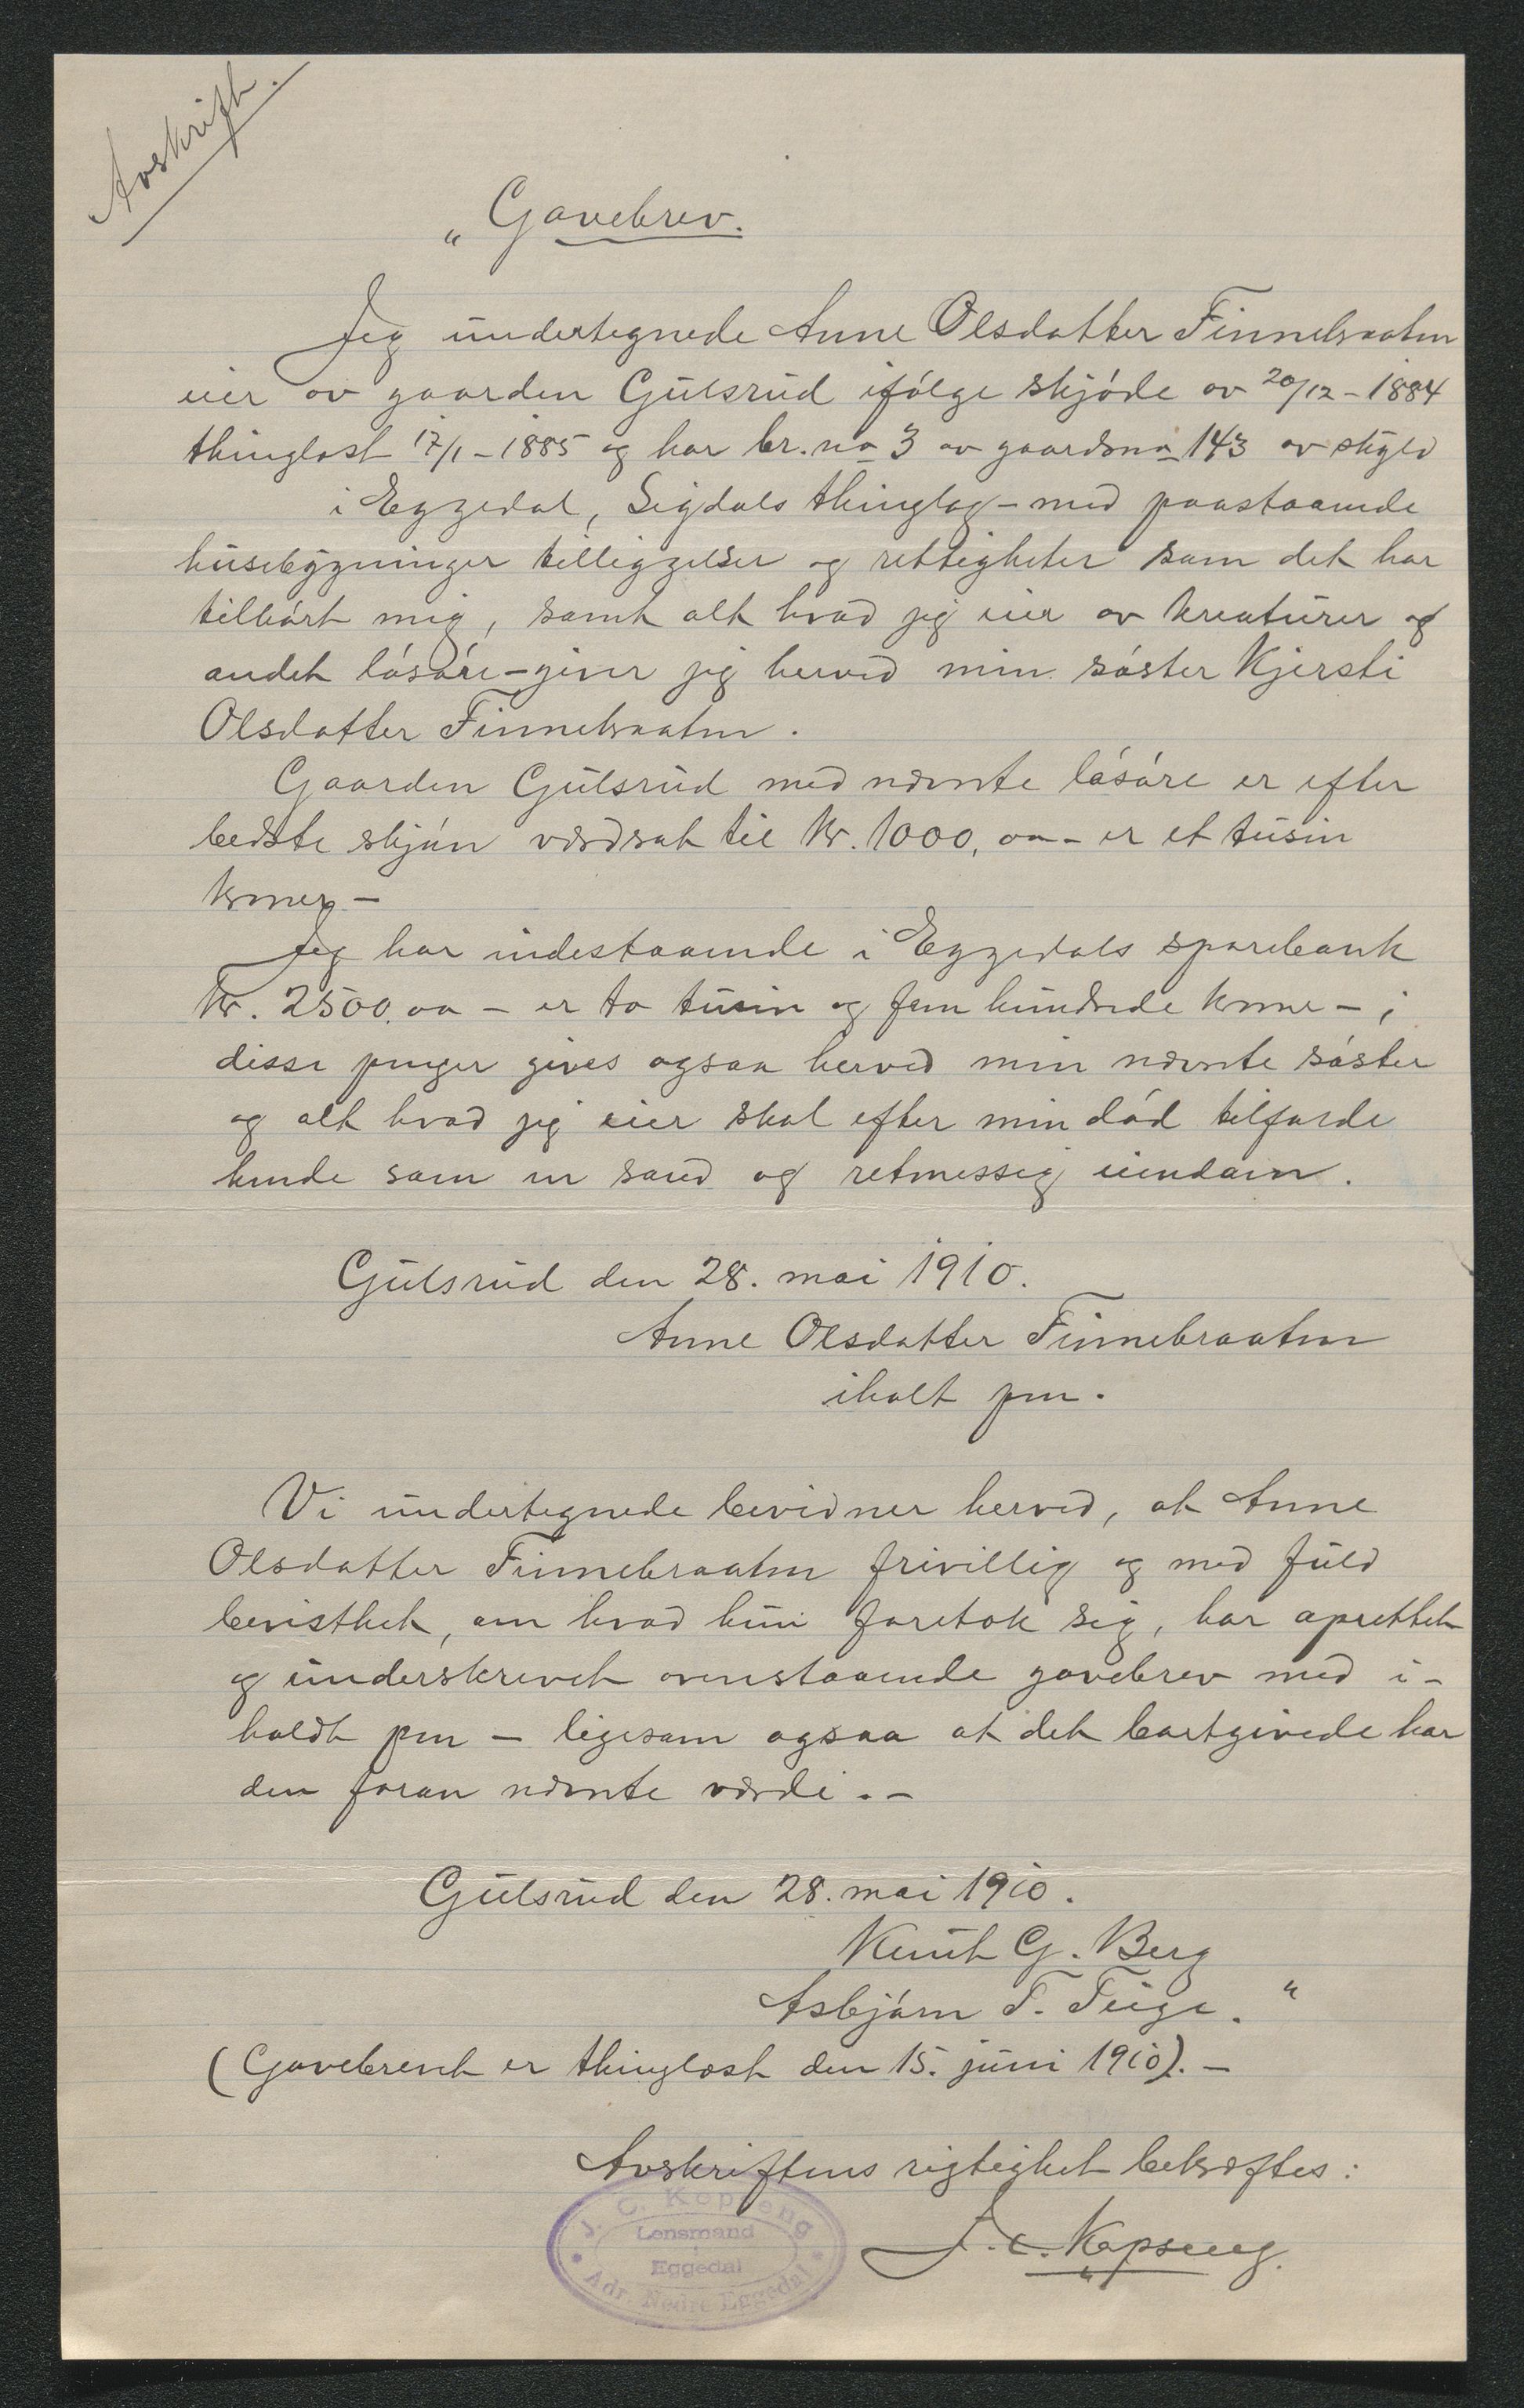 Avskrift.
„Gavebrev.
Jeg undertegnede Anne Olsdatter Finnebraaten
eier av gaarden Gulsrud ifölge skjöde av 20/12-1884
thinglæst 17/1-1885 og har br.no 3 av gaardsno 143 av skyld
i Eggedal, Sigdals thinglag - med paastaaende
husebygninger tilliggelser og rettigheter som det har
tilhört mig, samt alt hvad jeg eier av kreaturer og
andet lösöre - giver jeg herved min söster Kjersti
Olsdatter Finnebraaten.
Gaarden Gulsrud med nævnte lösöre er efter
bedste skjön værdsat til Kr. 1000,oo - er et tusin
kroner -
Jeg har indestaaende i Eggedals sparebank
Kr. 2500,oo - er to tusin og fem hundrede krone - ;
disse penger gives ogsaa herved min nævnte söster
og alt hvad jeg eier skal efter min död tilfalde
hende som en sand og retmessig eiendom.
Gulsrud den 28. mai 1910.
Anne Olsdatter Finnebraaten
iholt pen.
Vi undertegnede bevidner herved, at Anne
Olsdatter Finnebraaten frivillig og med fuld
bevisthet, om hvad hun foretok sig, har oprettet
og underskrevet ovenstaaende gavebrev med i-
holdt pen - ligesom ogsaa at det bortgivede har
den foran nævnte værdi. -
Gulsrud den 28. mai 1910.
Knut G. Berg
Asbjörn T. Teige. "
(Gavebrevet er thinglæst den 15. juni 1910). -
Avskriftens rigtighet bekræftes:
J. C. Kopseng
J. C. Kopseng
Lensmand
i
Eggedal
Adr. Nedre Eggedal